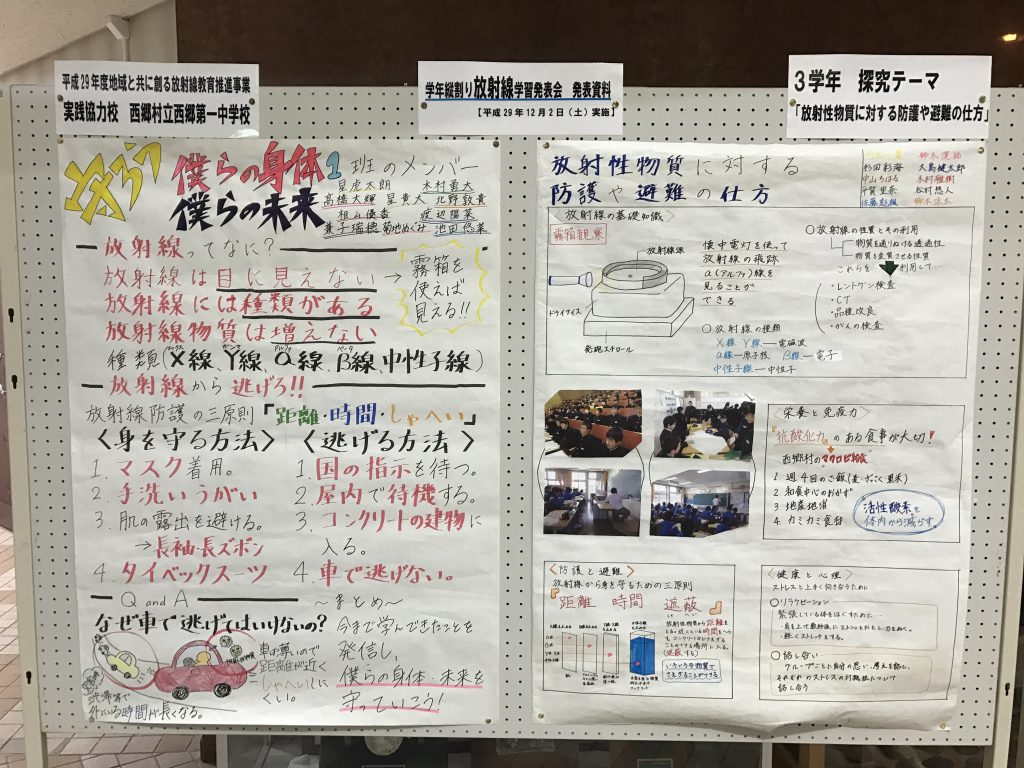 平成29年度地域と共に創る放射線教育推進事業
実践協力校 西郷村立西郷第一中学校
学年縦割り放射線学習発表会 発表資料
【平成29年12月2日(土)実施】
3学年 探究テーマ
「放射性物質に対する防護や避難の仕方」
守ろう
僕らの身体
僕らの未来
1班のメンバー
星虎太朗 木村勇大
高橋大輝 星貴大 北野敦貴
相山優香 渡辺陽菜
兼子瑞穂 菊地めぐみ 池田悠菜
放射線ってなに?
放射線は目に見えない→
放射線には種類がある
放射線物質は増えない
霧箱を
使えば
見える!!
種類(X線、γ線、α線、β線、中性子線)
エックス ガンマ アルファ ベータ
放射線から逃げろ!!
放射線防護の三原則「距離・時間・しゃへい」
〈身を守る方法〉
1. マスク着用。
2. 手洗いうがい
3. 肌の露出を避ける。
→長袖・長ズボン
4. タイベックスーツ
〈逃げる方法〉
1. 国の指示を待つ。
2. 屋内で待機する。
3. コンクリートの建物に
入る。
4. 車で逃げない。
Q and A
なぜ車で逃げてはいけないの?
車は薄いので
距離が近く
しゃへいしに
くい。
渋滞等で
外にいる時間が長くなる。
~まとめ~
今まで学んできたことを
発信し、
僕らの身体・未来を
守っていこう!
放射性物質に対する
防護や避難の仕方
鈴木優祐
杉田彩海 大島健太郎
片山ちはる 木村雅樹
芳賀里奈 松村悠人
佐藤彪雅 鈴木涼太
〈放射線の基礎知識〉
霧箱観察
放射線源
ドライアイス
発泡スチロール
懐中電灯を使って
放射線の痕跡
α(アルファ)線を
見ることが
できる
○放射線の種類
X線 γ線―電磁波
α線―原子核 β線―電子
中性子線―中性子
○放射線の性質とその利用
物質を通りぬける透過性
物質を変質させる性質
これらを利用して…
・レントゲン検査
・CT
・品種改良
・がんの検査
〈栄養と免疫力〉
抗酸化力のある食事が大切!
西郷村のマクロビ給食
1 週4回のご飯(麦・ざっこく・玄米)
2 和食中心のおかず
3 地産地消
4 カミカミ食材
活性酸素を
体内から減らす
〈防護と避難〉
放射線から身を守るための三原則
距離 時間 遮蔽
放射性物質から距離を
とる。近くにいる時間をへら
す。コンクリートなどさえぎる
ことのできる場所に入る。
(遮蔽する)
いろいろな物質で
さえぎることができる
〈健康と心理〉
ストレスと上手く向き合うために
○リラクゼーション
緊張している体をほぐすために…
・軽くストレッチをする。
○話し合い
グループごとに自分の思い、考えを話し、
それぞれのストレスの対処法について
話し合う